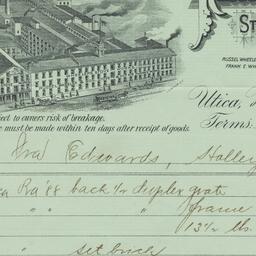 St
RUSSEL WHEELE
FRANK E. WH
Utica,
ject to owners risk of breakage.
Terms
must be made within ten days after receipt of goods.
Ira Edwards, Holley
Ra '88 back 1/2 duplex grate
" " " frame
13 1/2 lbs.
" set brick